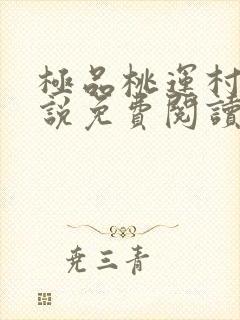 極品桃運村
說免費閱讀
尧三青